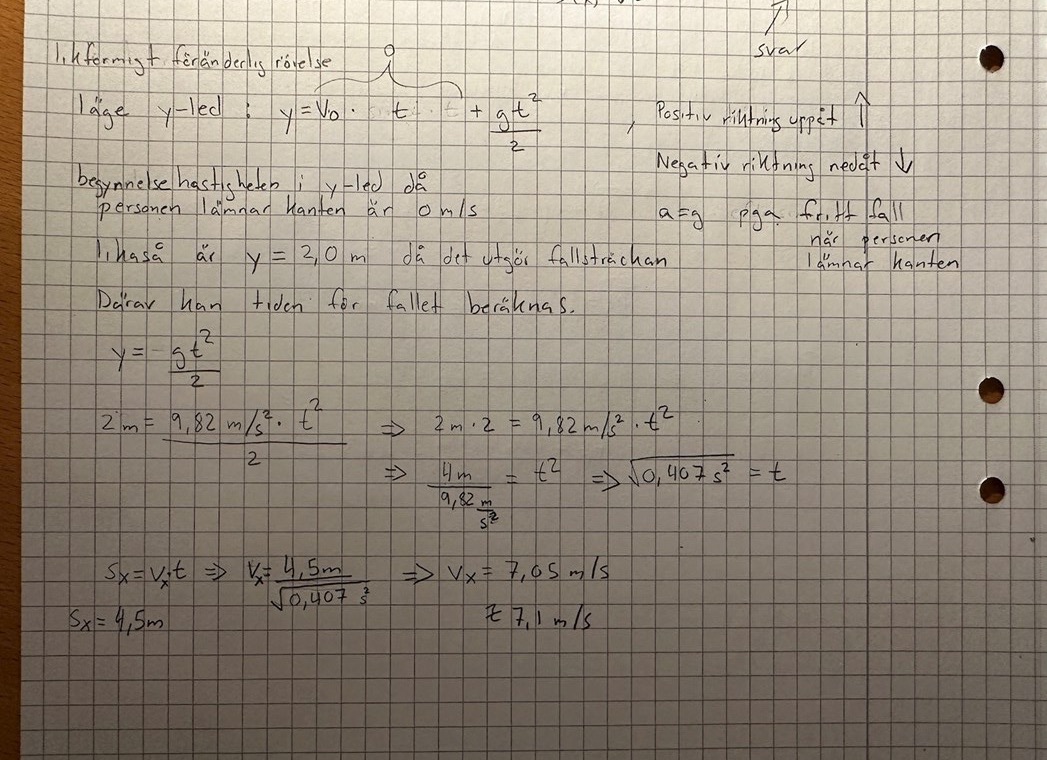 svar
likformigt föränderlig rörelse
0
läge y-led : y = v₀ · t + gt²/2 , Positiv riktning uppåt ↑
Negativ riktning nedåt ↓
begynnelsehastigheten i y-led då
personen lämnar kanten är 0 m/s
a=g pga fritt fall
när personen
lämnar kanten
likaså är y = 2,0 m då det utgör fallsträckan
Därav kan tiden för fallet beräknas.
y = gt²/2
2m = 9,82 m/s² · t² / 2 ⇒ 2m · 2 = 9,82 m/s² · t²
⇒ 4m / 9,82 m/s² = t² ⇒ √0,407 s² = t
Sx = Vx·t ⇒ Vx = 4,5m / √0,407 s² ⇒ Vx = 7,05 m/s
Sx = 4,5m
≈ 7,1 m/s